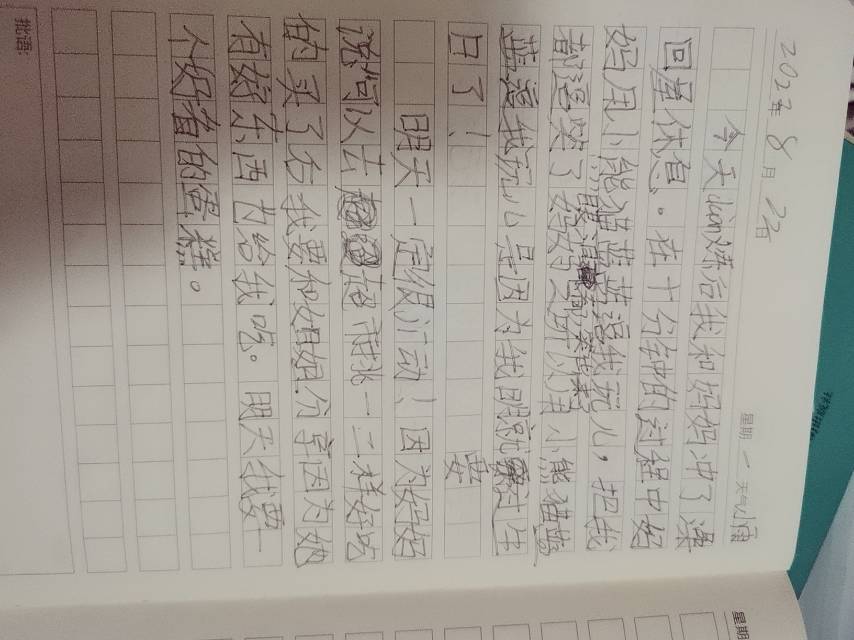 2022年8月2日
星期一 天气小雨
今天 后我和妈妈冲了澡
回屋休息。在十分钟的过程中妈
妈用小熊猫 逗我玩儿,把我
都逗笑了妈妈 所以用小熊猫
逗我玩儿是因为我明就要过生
日了!
明天一定很 动!因为妈妈
说可以去超市挑一二样好吃
的买了后我要和姐姐分享因为她
有好东西也给我吃。明天我要一
个好看的蛋糕。
批语:
星期